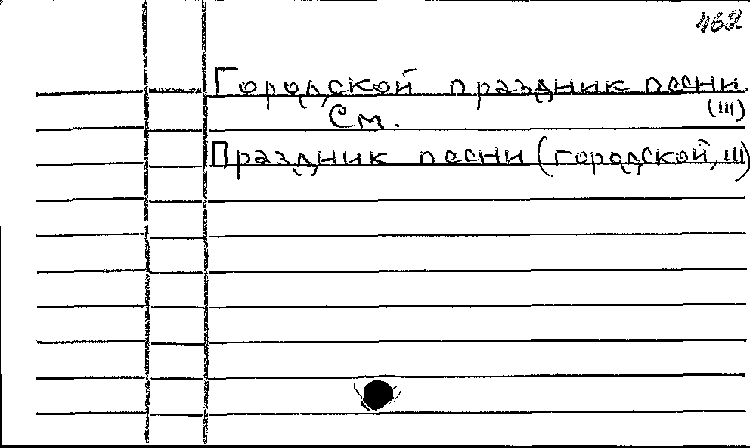 462
Городской праздник песни
(III)
См.
Праздник песни (городской, III)